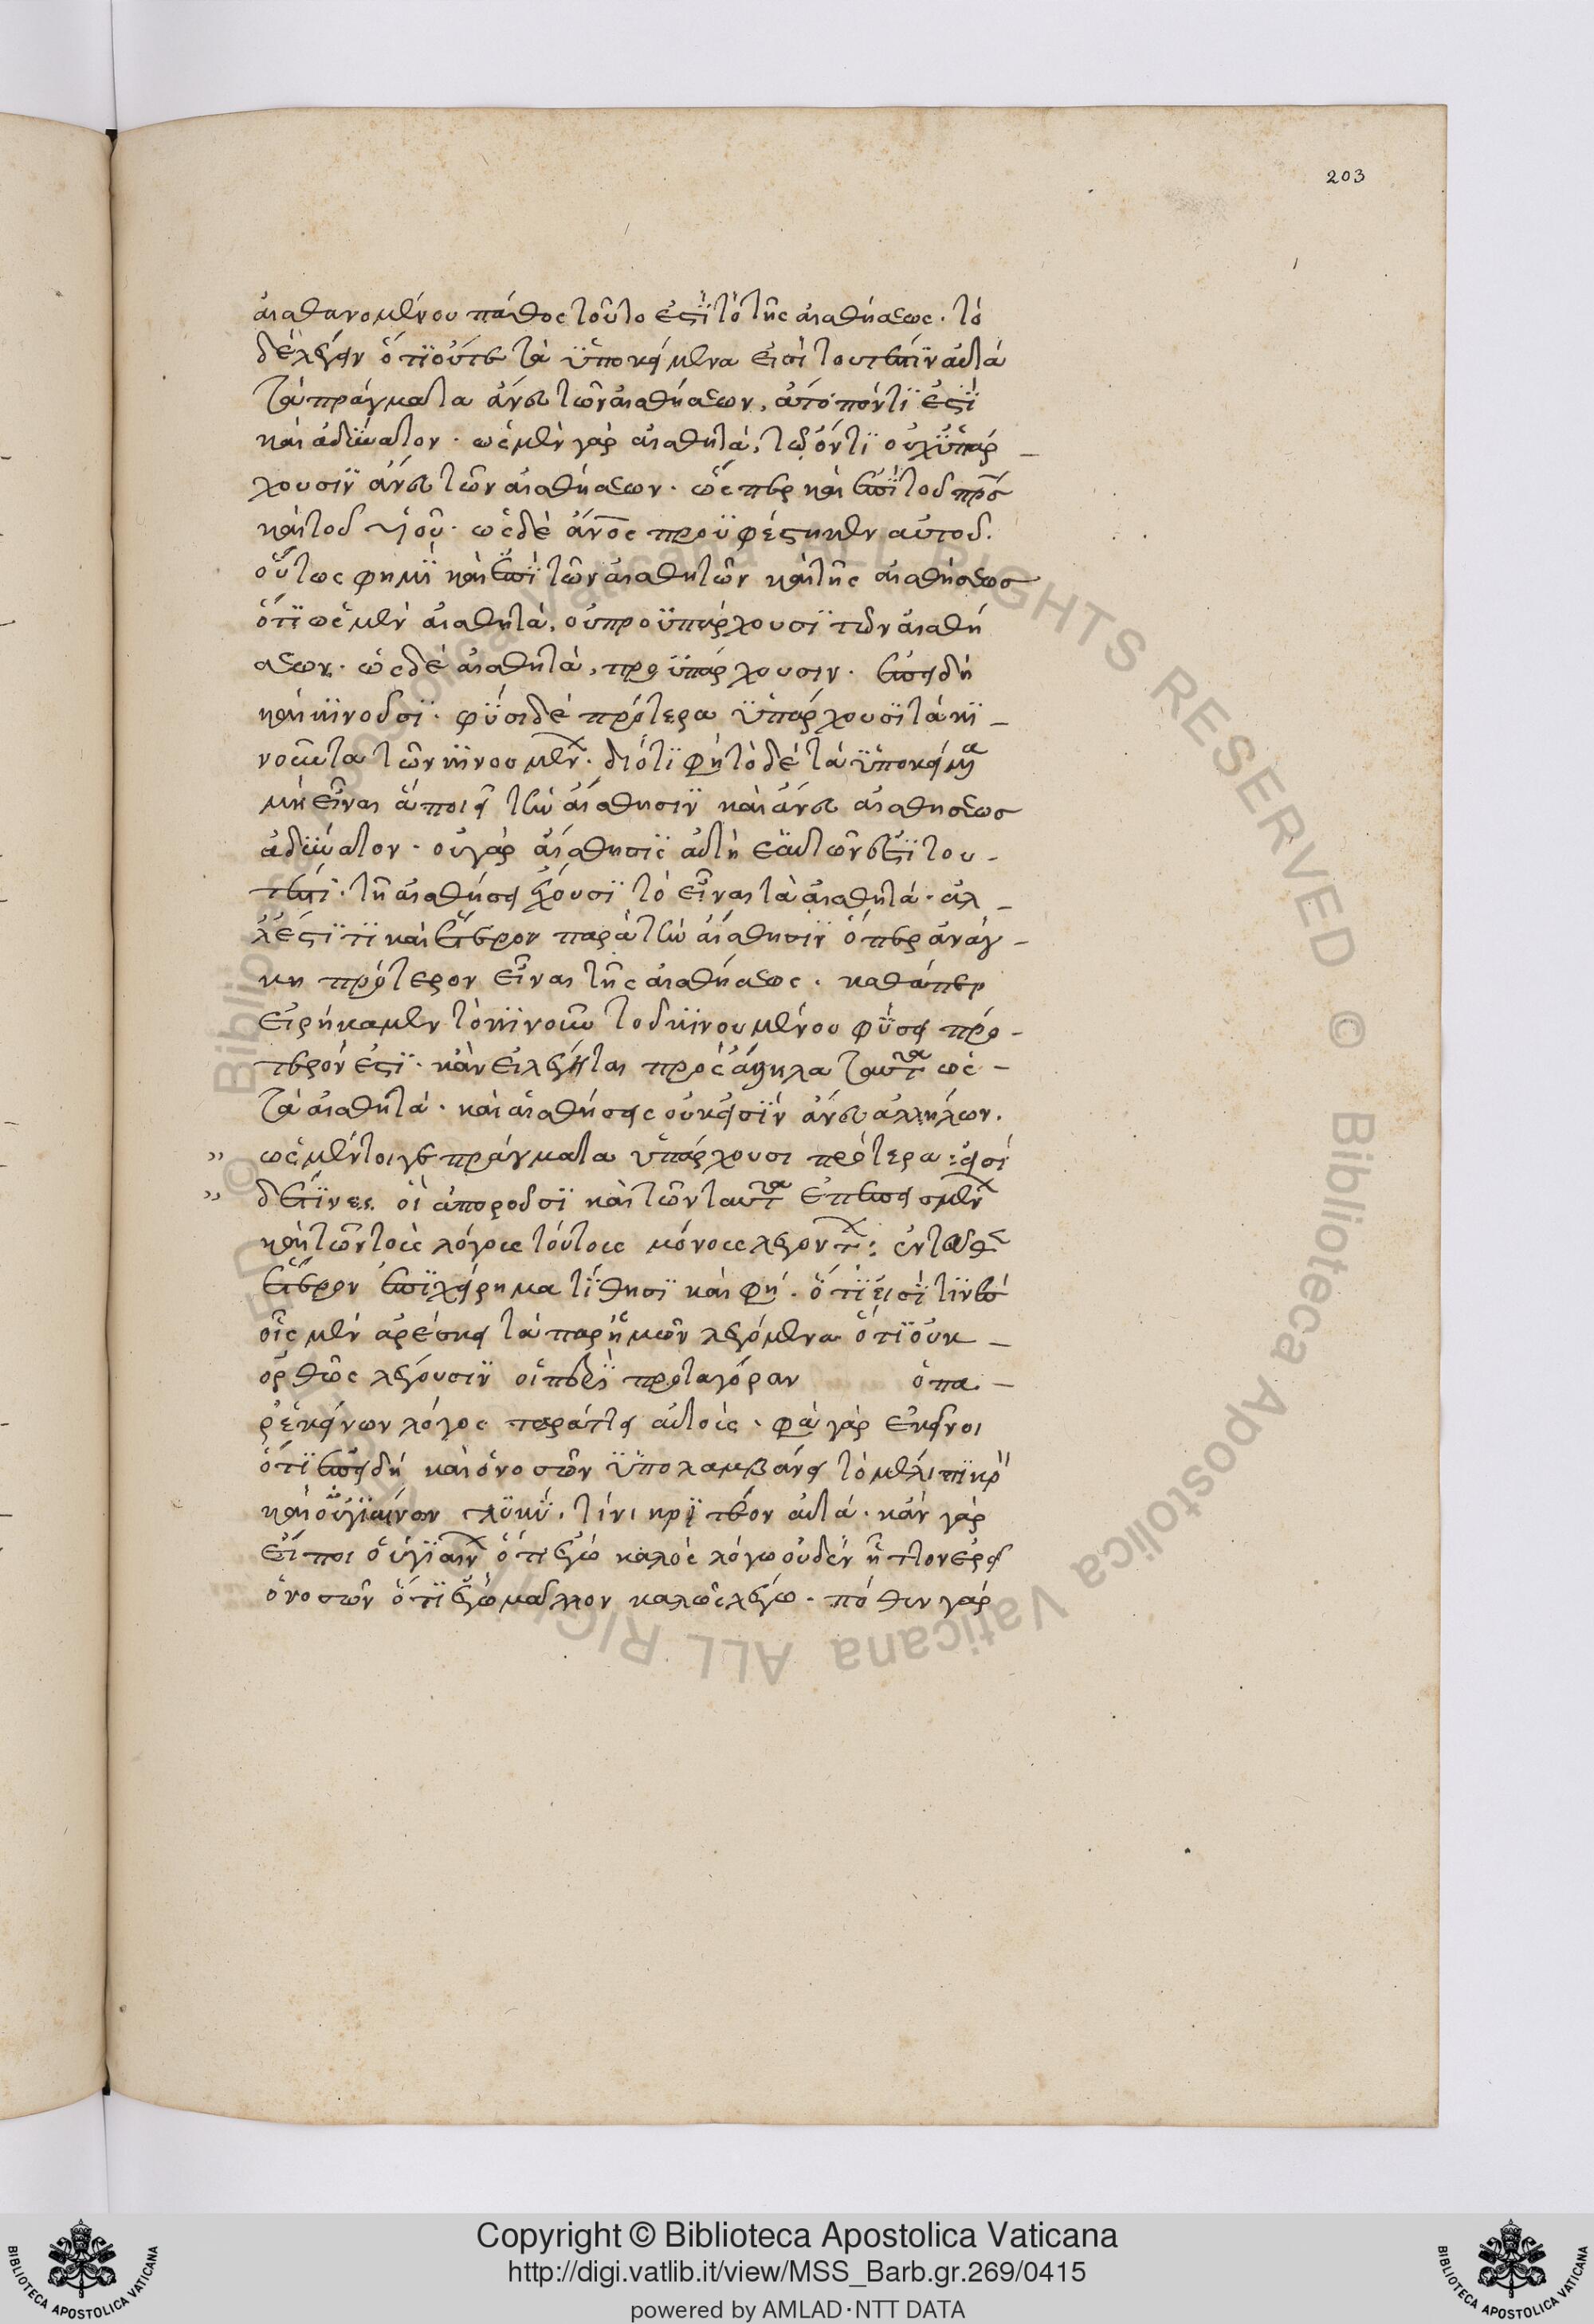 203
αἰσθανομένου πάθος τοῦτο ἐστὶ τὸ τῆς αἰσθήσεως. τὸ
δὲ λέγειν ὅτι οὔτε τὰ ὑποκείμενα εἰσὶ τουτέστιν αὐτὰ
τὰ πράγματα ἄνευ τῶν αἰσθήσεων, ἄτοπόν τί ἐστι
καὶ ἀδύνατον. ὡς μὲν γὰρ αἰσθητὰ, τῷ ὄντι οὐχ ὑπάρ_
χουσιν ἄνευ τῶν αἰσθήσεων. ὥσπερ καὶ ἐπὶ τοῦ πρσ
καὶ τοῦ υἱοῦ. ὡς δὲ ἄνος προϋφέστηκεν αὐτοῦ.
οὕτως φημὶ καὶ ἐπὶ τῶν αἰσθητῶν καὶ τῆς αἰσθήσεως
ὅτι ὡς μὲν αἰσθητὰ, οὐ προϋπάρχουσι τῶν αἰσθή
σεων. ὡς δὲ αἰσθητὰ, προϋπάρχουσιν. ἐπειδὴ
καὶ κινοῦσι. φύσι δὲ πρότερα ὑπάρχουσι τὰ κι_
νοῦντα τῶν κινουμέν. διότι φη τὸ δὲ τὰ ὑποκείμα
μὴ εἶναι ἃ ποιεῖ τὴν αἴσθησιν καὶ ἄνευ αἰσθήσεως
ἀδύνατον. οὐ γὰρ αἴσθησις αὐτὴ ἑαυτῶν ἐστὶ του_
τέστι. τῇ αἰσθήσει ἔχουσι τὸ εἶναι τὰ αἰσθητά. ἀλ_
λ' ἔστι τι καὶ ἕτερον παρὰ τὴν αἴσθησιν ὅπερ ἀνάγ_
κη πρότερον εἶναι τῆς αἰσθήσεως. καθάπερ
εἰρήκαμεν τὸ κινοῦν τοῦ κινουμένου φύσει πρό_
τερόν ἐστι. κἂν εἰ λέγηται πρὸς ἄλληλα ταῦτα ὡς_
τὰ αἰσθητά. καὶ αἰσθήσεις οὐκ εἰσὶν ἄνευ ἀλλήλων.
ὡς μέντοιγε πράγματα ὑπάρχουσι πρότερα: εἰσὶ
δέ τινες οἳ ἀποροῦσι καὶ τῶν ταῦτα ἐπεπεισμέν
καὶ τῶν τοὺς λόγους τούτους μόνους λεγοντ: ἐνταῦθ
ἕτερον ἐπιχείρημα τίθησι καὶ φη. ὅτι εἰσὶ τινὲσ
οἷς μὲν ἀρέσκει τὰ παρ' ἡμῶν λεγόμενα ὅτι οὐκ_
ὀρθῶς λέγουσιν οἱ περὶ πρωταγόραν ὁ πα_
ρ' ἐκείνων λόγος ταράττει αὐτούς. φα γὰρ ἐκεῖνοι
ὅτι ἐπειδὴ καὶ ὁ νοσῶν ὑπολαμβάνει τὸ μέλι πικρὸ
καὶ ὁ ὑγιαίνων γλυκύ. τίνι κριτέον αὐτά. κἂν γὰρ
εἴποι ὁ ὑγιαίν ὅτι ἐγὼ καλῶς λέγω οὐδὲν ἧττον ἐρεῖ
ὁ νοσῶν ὅτι ἐγὼ μᾶλλον καλῶς λέγω. πόθεν γὰρ
Copyright © Biblioteca Apostolica Vaticana
http://digi.vatlib.it/view/MSS_Barb.gr.269/0415
powered by AMLAD·NTT DATA